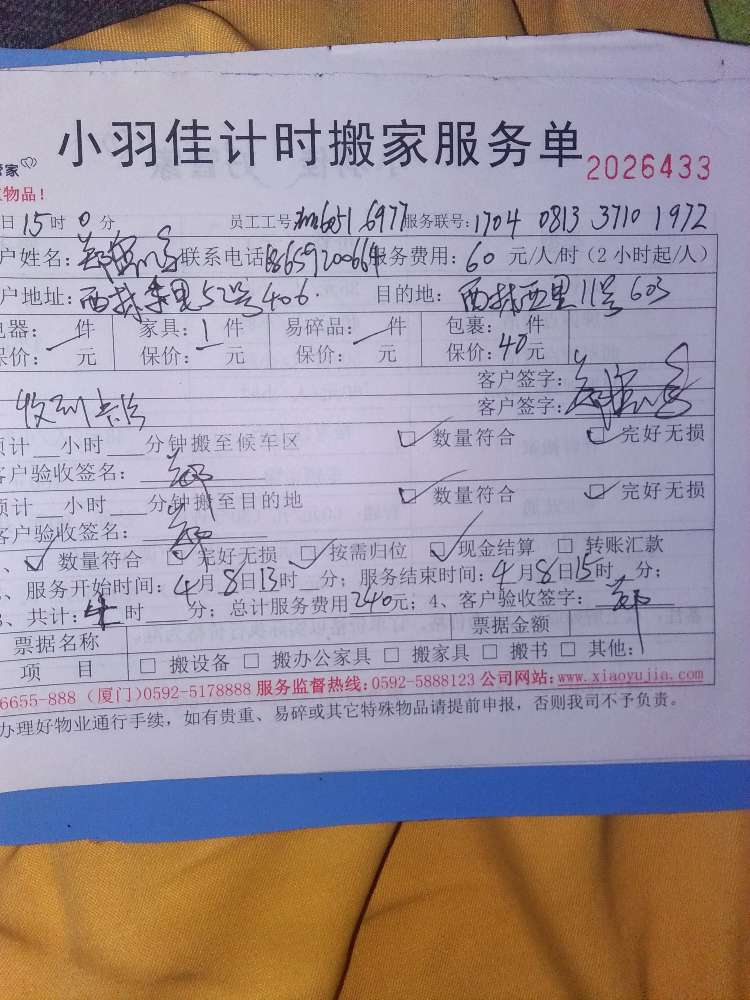 小羽佳计时搬家服务单 2026433
管家
物品!
日15时0分 员工工号: 6977 服务联号:1704 0813 3710 1972
户姓名:郑 联系电话 服务费用:60元/人/时(2小时起/人)
户地址:西林 里52号406. 目的地:西林西里11号603
电器: 件 家具:1件 易碎品: 件 包裹: 件
保价: 元 保价: 元 保价: 元 保价:40元
客户签字:郑
收到 客户签字:郑
预计__小时___分钟搬至候车区 数量符合 完好无损
客户验收签名:郑
预计__小时___分钟搬至目的地 数量符合 完好无损
客户验收签名:郑
、 数量符合 完好无损 按需归位 现金结算 转账汇款
、服务开始时间:4月8日13时__分;服务结束时间:4月8日15时__分;
3、共计: 时___分;总计服务费用240元;4、客户验收签字:郑
票据名称 票据金额
项 目 □ 搬设备 □ 搬办公家具 □ 搬家具 □ 搬书 □ 其他:
6655-888 (厦门)0592-5178888 服务监督热线:0592-5888123 公司网站:www.xiaoyujia.com
办理好物业通行手续,如有贵重、易碎或其它特殊物品请提前申报,否则我司不予负责。